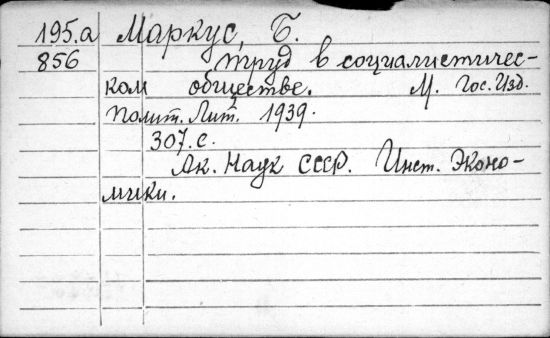 195.a Маркус, Б.
856 Труд в социалистичес-
ком обществе. М. Гос. Изд.
Полит. Лит. 1939.
307.с.
Ак. Наук СССР. Инст. Эконо-
мики.